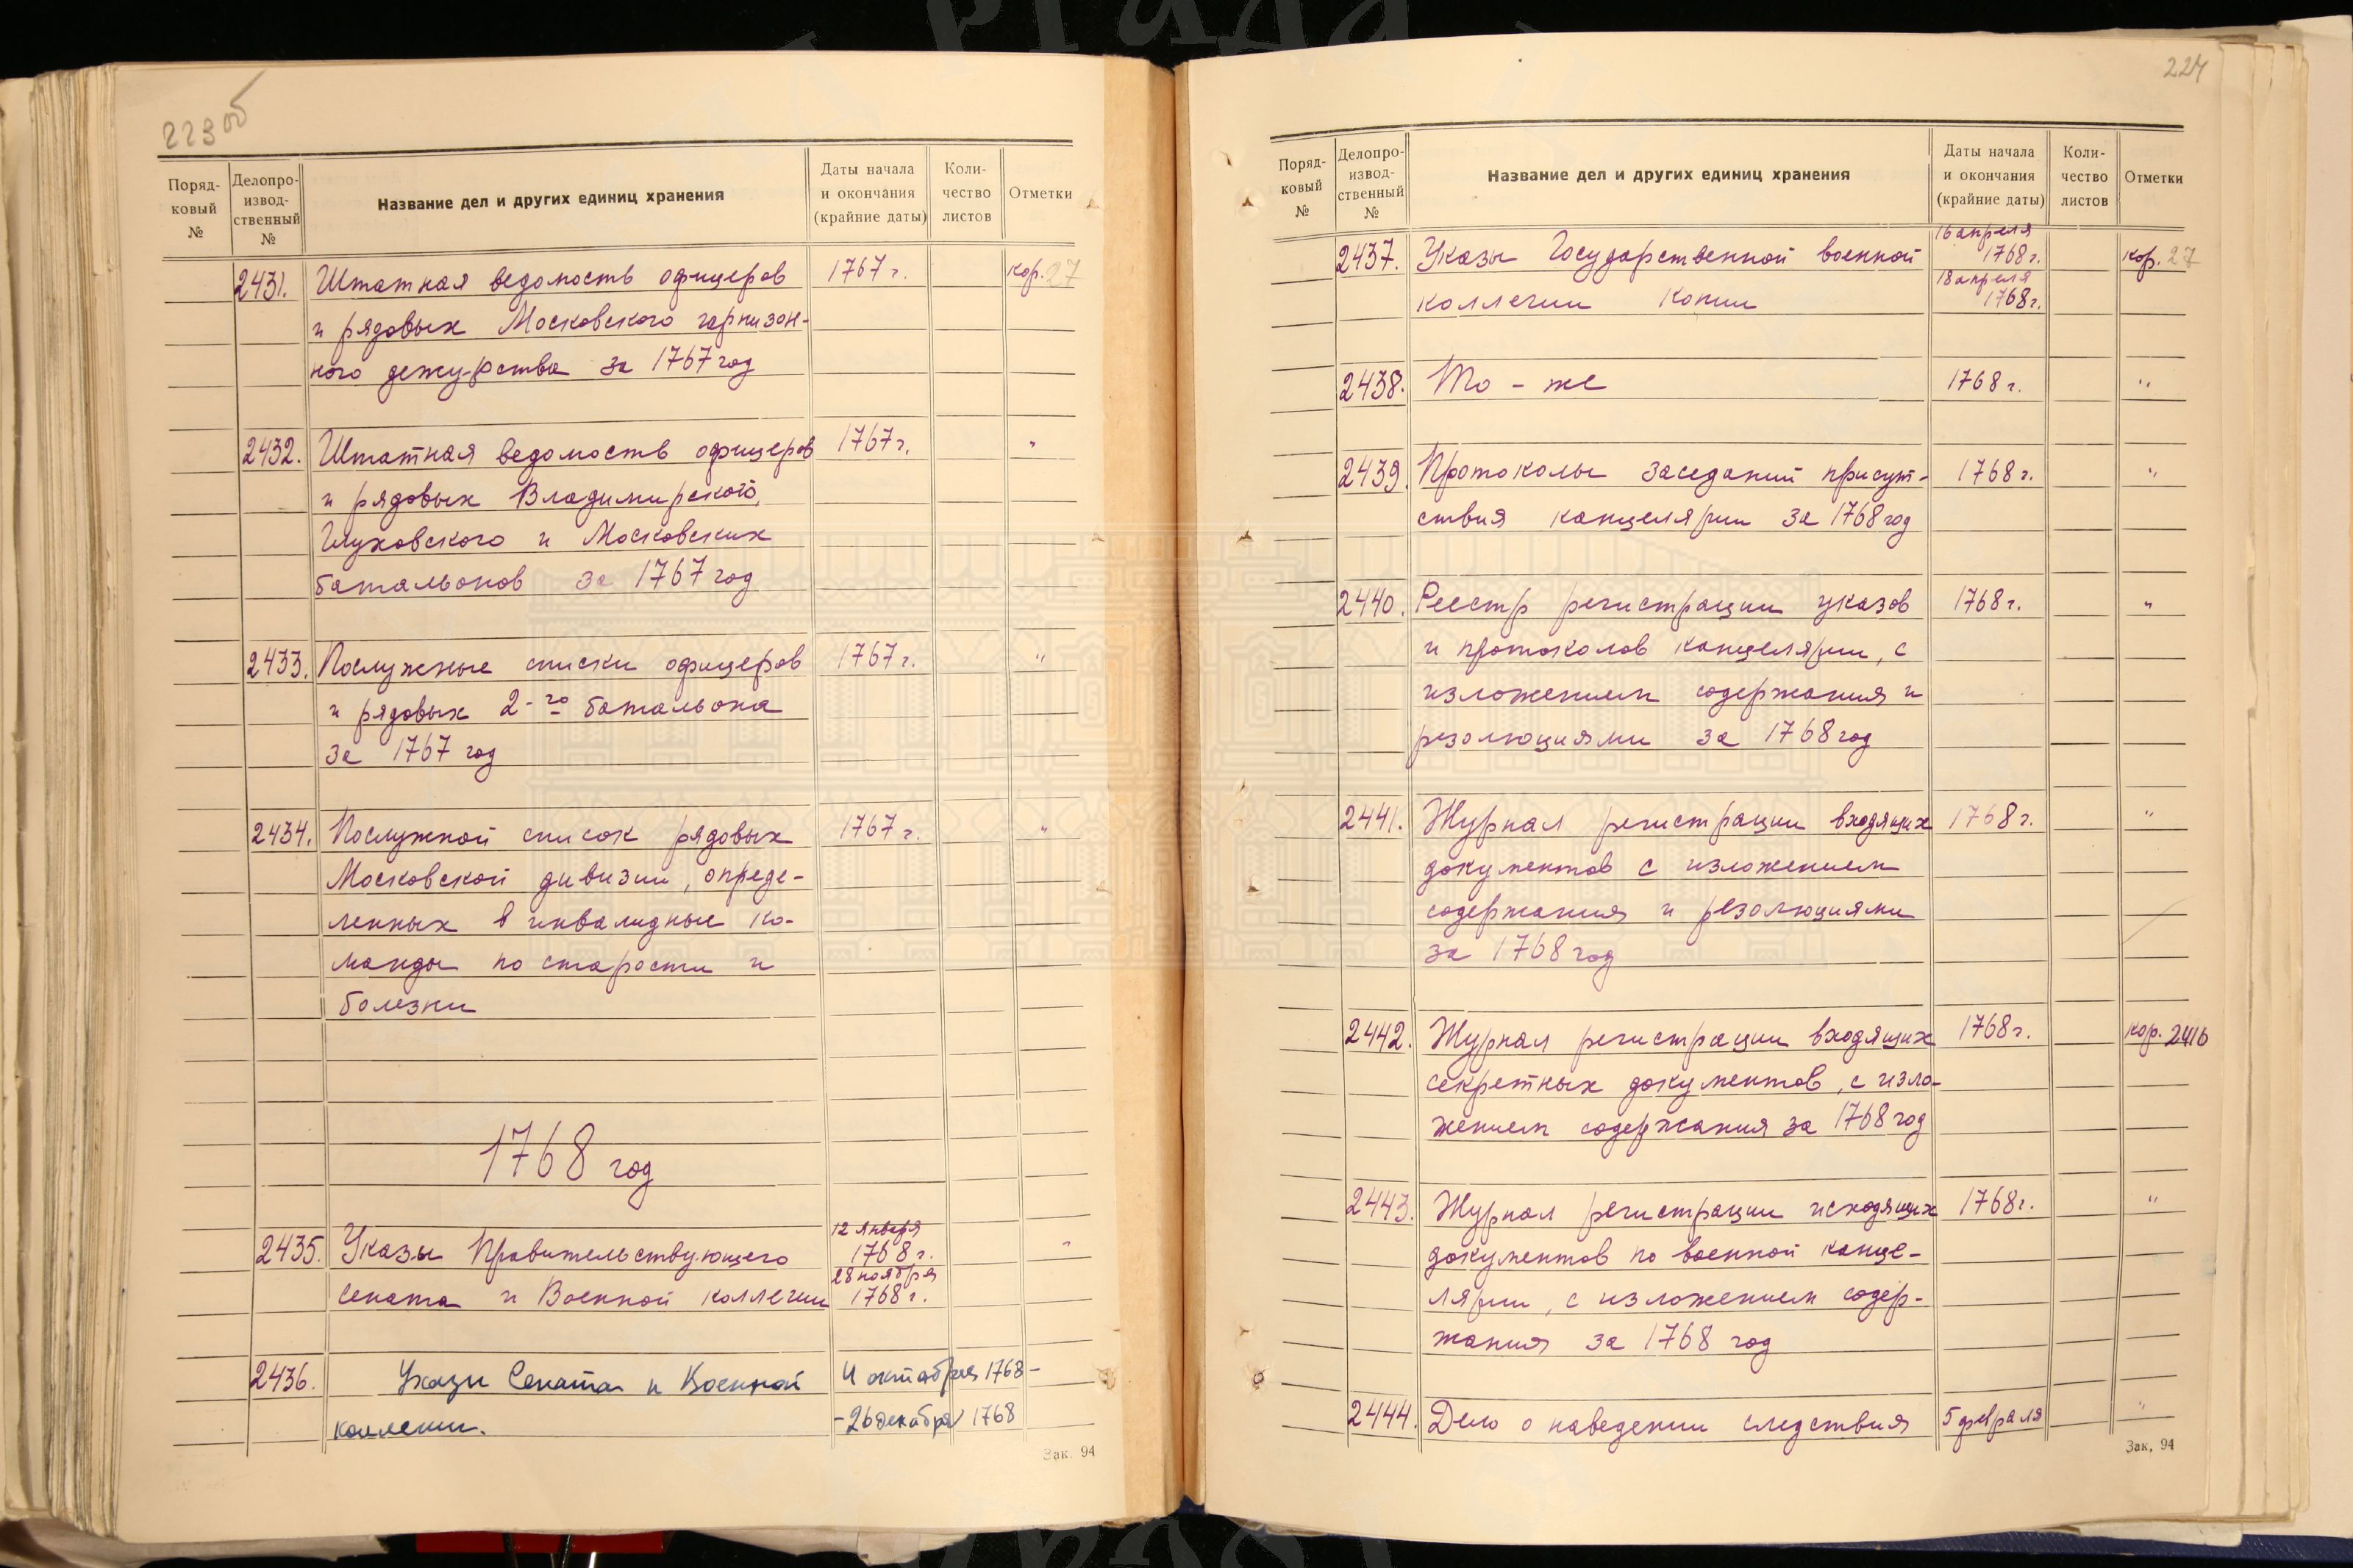 223 об
Поряд-
ковый
№
Делопро-
извод-
ственный
№
Название дел и других единиц хранения
Даты начала
и окончания
(крайние даты)
Коли-
чество
листов
Отметки
2431. Штатная ведомость офицеров 1767 г. кор. 27
и рядовых Московского гарнизон-
ного дежурства за 1767 год
2432. Штатная ведомость офицеров 1767 г. "
и рядовых Владимирского,
Глуховского и Московских
батальонов за 1767 год
2433. Послужные списки офицеров 1767 г. "
и рядовых 2-го батальона
за 1767 год
2434. Послужной список рядовых 1767 г. "
Московской дивизии, опреде-
ленных в инвалидные ко-
манды по старости и
болезни
1768 год
12 января
2435. Указы Правительствующего 1768 г. "
28 ноября
Сената и Военной коллегии 1768 г.
2436. Указы Сената и Военной 4 октября 1768 -
коллегии. - 26 декабря 1768
Зак. 94
224
Поряд-
ковый
№
Делопро-
извод-
ственный
№
Название дел и других единиц хранения
Даты начала
и окончания
(крайние даты)
Коли-
чество
листов
Отметки
16 апреля
2437. Указы Государственной военной 1768 г. кор. 27
18 апреля
коллегии Копии 1768 г.
2438. То - же 1768 г. "
2439. Протоколы заседаний присут- 1768 г. "
ствия канцелярии за 1768 год
2440. Реестр регистрации указов 1768 г. "
и протоколов канцелярии, с
изложением содержания и
резолюциями за 1768 год
2441. Журнал регистрации входящих 1768 г. "
документов с изложением
содержания и резолюциями
за 1768 год
2442. Журнал регистрации входящих 1768 г. кор.
секретных документов, с изло-
жением содержания за 1768 год
2443. Журнал регистрации исходящих 1768 г. "
документов по военной канце-
лярии, с изложением содер-
жания за 1768 год
2444. Дело о наведении следствия 5 февраля "
Зак. 94